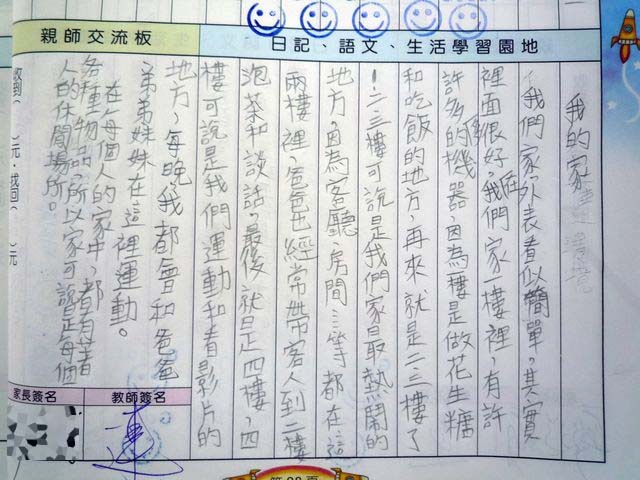 親師交流板
日記、語文、生活學習園地
我的家
我們家外表看似簡單，其實
裡面很好，在我們家一樓裡，有許
許多的機器，因為一樓是做花生糖
和吃飯的地方，再來就是二、三樓了
！二、三樓可說是我們家最熱鬧的
地方，因為客聽、房間…等都在這
兩樓裡，爸爸也經常帶客人到二樓
泡茶和談話，最後就是四樓，四
樓可說是我們運動和看影片的
地方，每晚，我都會和爸爸、
弟弟妹妹在這裡運動。
在每個人的家中，都有著
各種物品，所以家可說是每個
人的休閒場所。
收到（　）元，找回（　）元
教師簽名
家長簽名